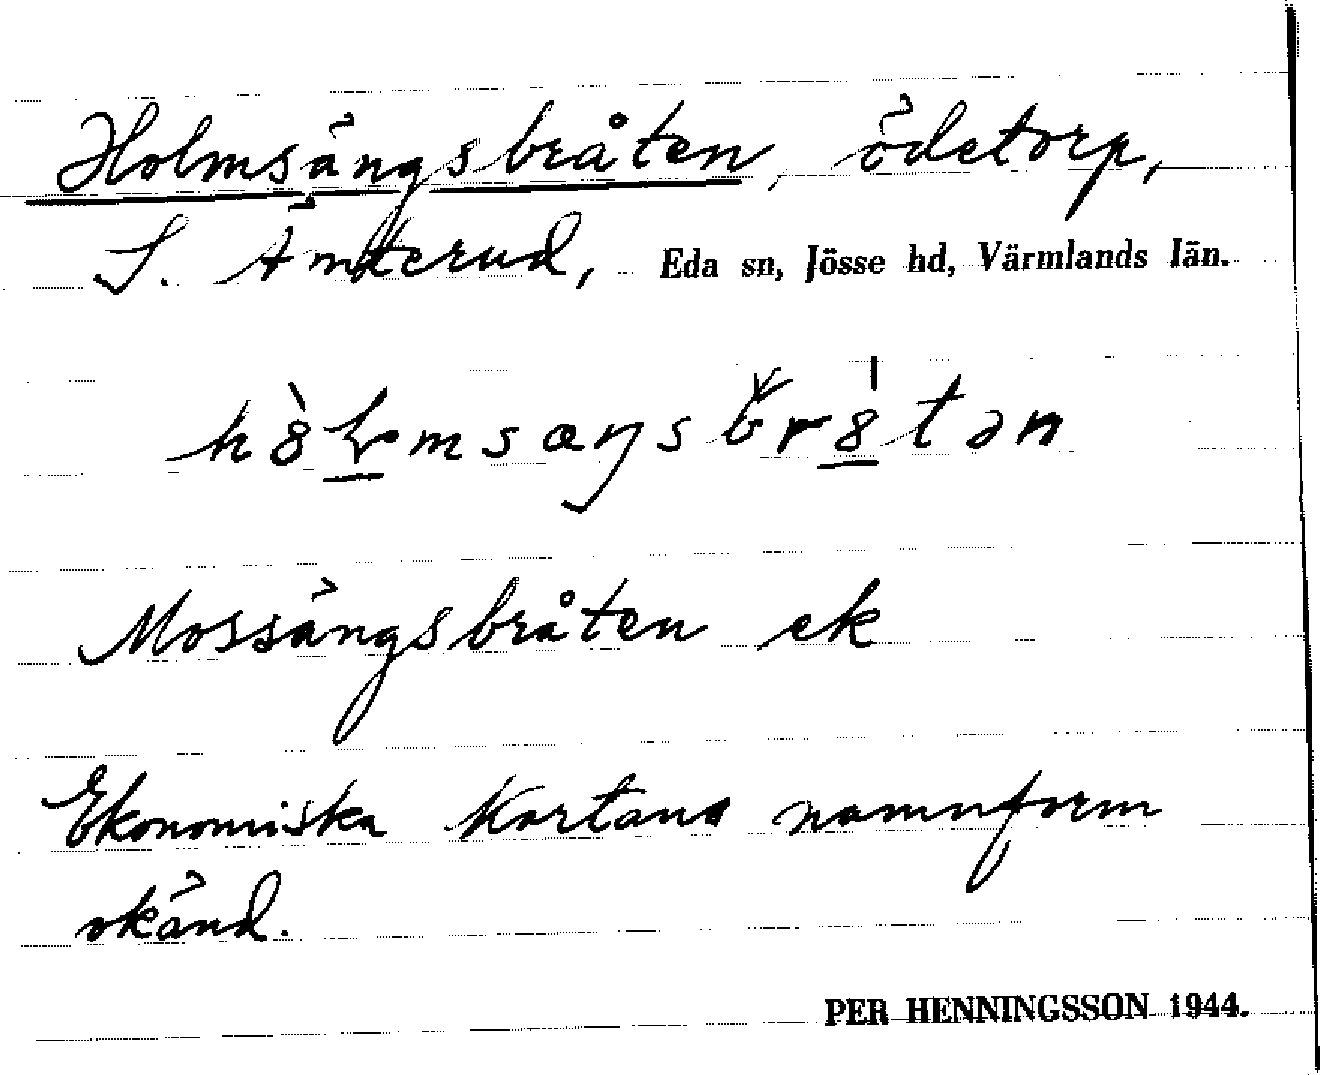 Holmsängsbråten, ödetorp,
S. Ämterud, Eda sn, Jösse hd, Värmlands län.
hòlmsæŋsbrötən
Mossängsbråten ek
Ekonomiska Kartans namnform
okänd.
PER HENNINGSSON 1944.